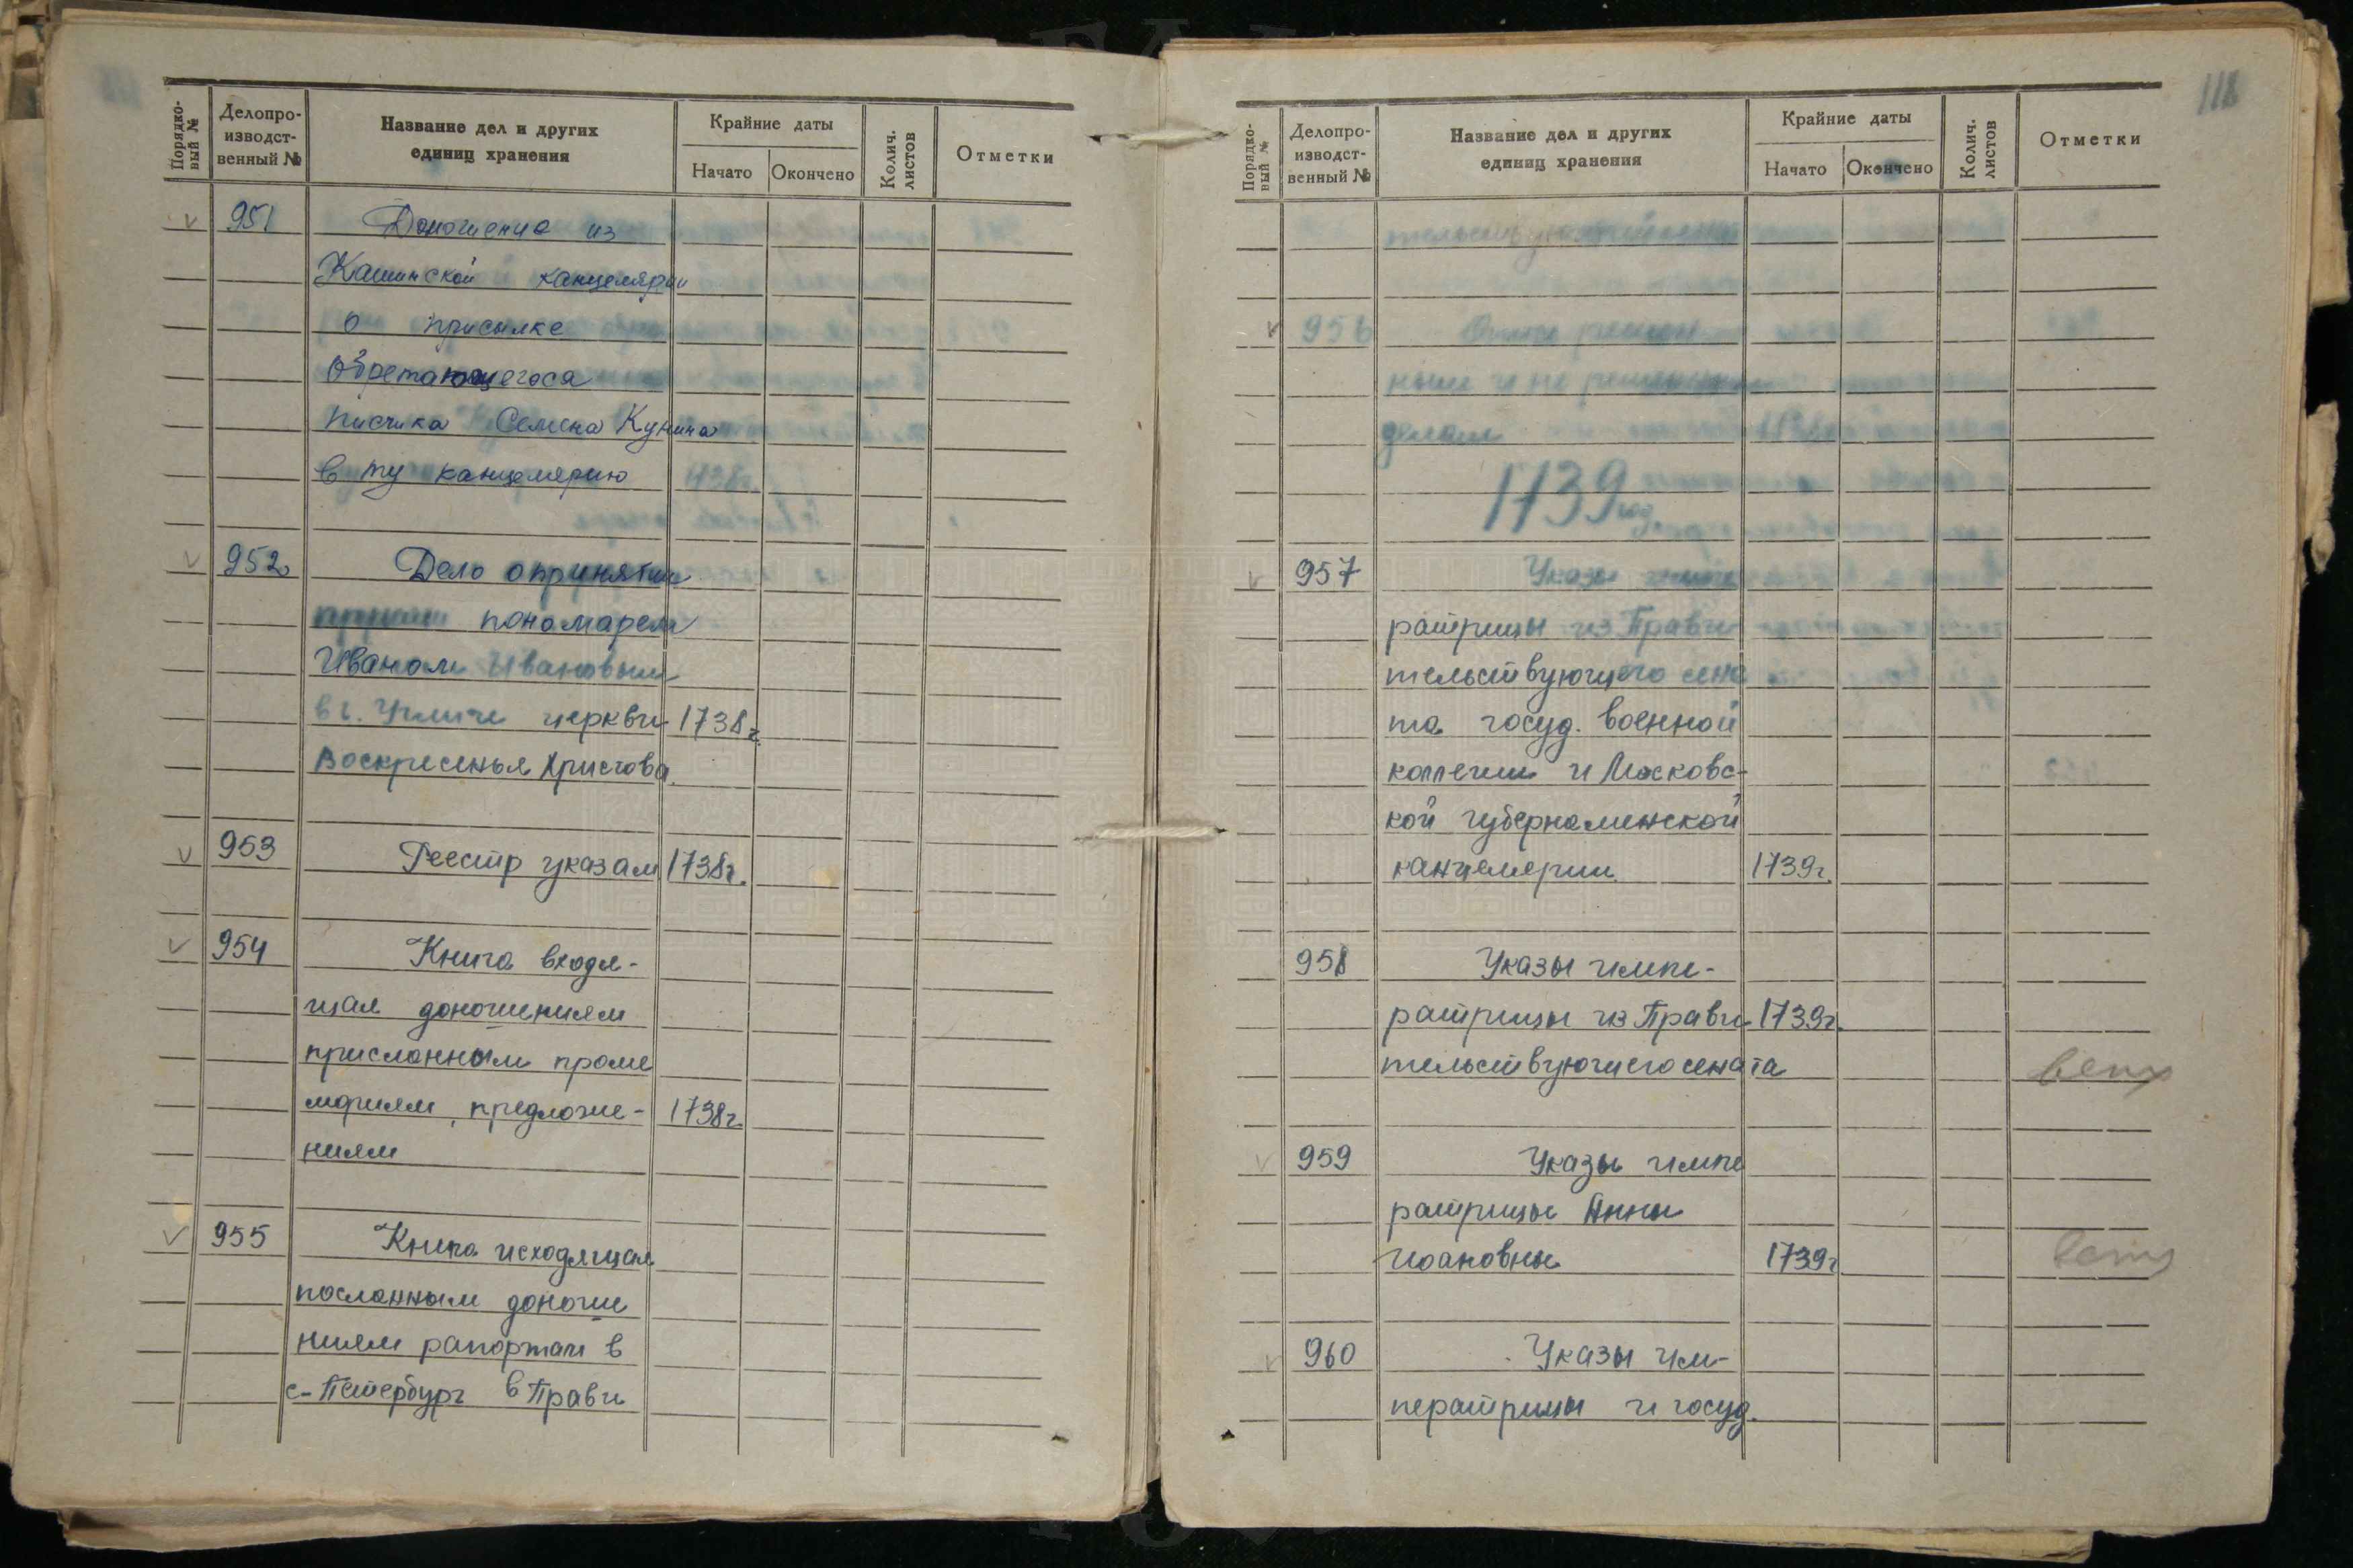 Порядко-
вый №
Делопро-
изводст-
венный №
Название дел и других
единиц хранения
Крайние даты
Начато
Окончено
Колич.
листов
Отметки
951 Доношение из
Кашинской канцелярии
о присылке
обретающегося
писчика Семена Кунина
в ту канцелярию
952 Дело о принятии
пономарем
Иваном Ивановым
в г. Угличе церкви 1738г.
Воскресенья Христова
953 Реестр указам 1738г.
954 Книга входя-
щая доношениям
присланным проме
мориям, предложе- 1738г.
ниям
955 Книга исходящая
посланным доноше
ниям рапортам в
с-Петербург в Прави
118
Порядко-
вый №
Делопро-
изводст-
венный №
Название дел и других
единиц хранения
Крайние даты
Начато
Окончено
Колич.
листов
Отметки
956 Опись решен
ным и не решенным
делам
1739 год
957 Указы импе
ратрицы из Прави
тельствующего сена
та госуд. военной
коллегии и Московс-
кой губернаменской
канцелярии 1739г.
958 Указы импе-
ратрицы из Прави- 1739г.
тельствующего сената
ветх
959 Указы импе
ратрицы Анны
Иоановны 1739г
ветх
960 Указы им-
ператрицы и госуд.